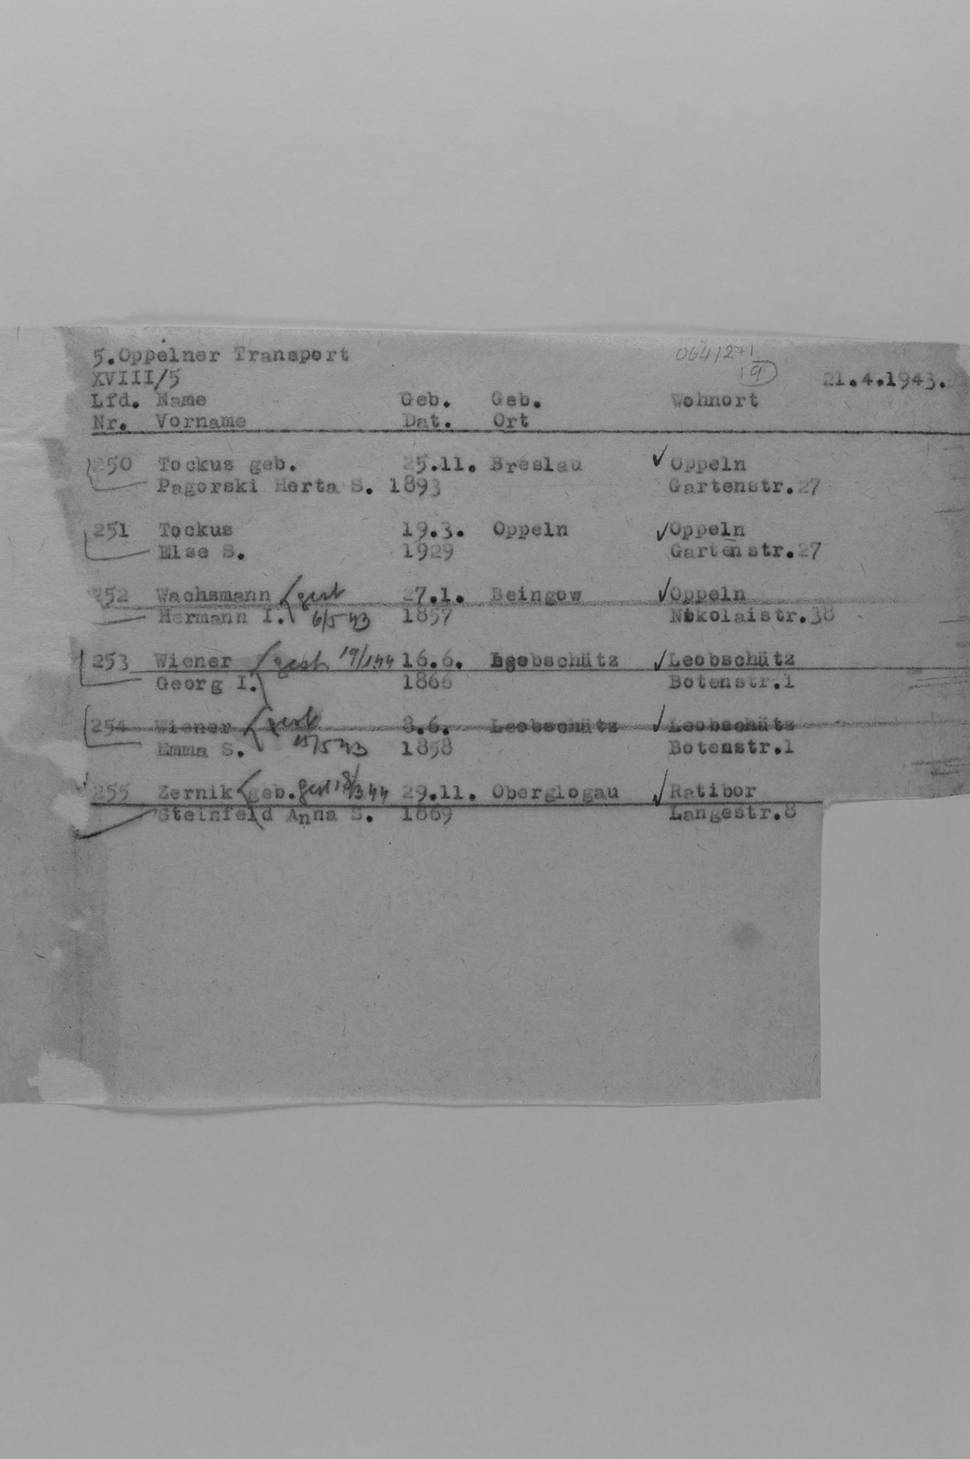 5.Oppelner Transport
0641271
9
XVIII/5 21.4.1943.
Lfd. Name Geb. Geb. Wohnort
Nr. Vorname Dat. Ort
250 Tockus geb. 25.11. Breslau ✓ Oppeln
Pagorski Herta S. 1893 Gartenstr.27
251 Tockus 19.3. Oppeln ✓ Oppeln
Else S. 1929 Gartenstr.27
252 Wachsmann gest 27.1. Beingow ✓ Oppeln
Hermann I. 6/5 43 1857 Nikolaistr.38
253 Wiener gest. 19/1 44 16.6. Leobschütz ✓ Leobschütz
Georg I. 1866 Botenstr.1
254 Wiener gest 8.6. Leobschütz ✓ Leobschütz
Emma S. 15/5 43 1858 Botenstr.1
255 Zernik geb. gest 18/3 44 29.11. Oberglogau ✓ Ratibor
Steinfeld Anna S. 1869 Langestr.8